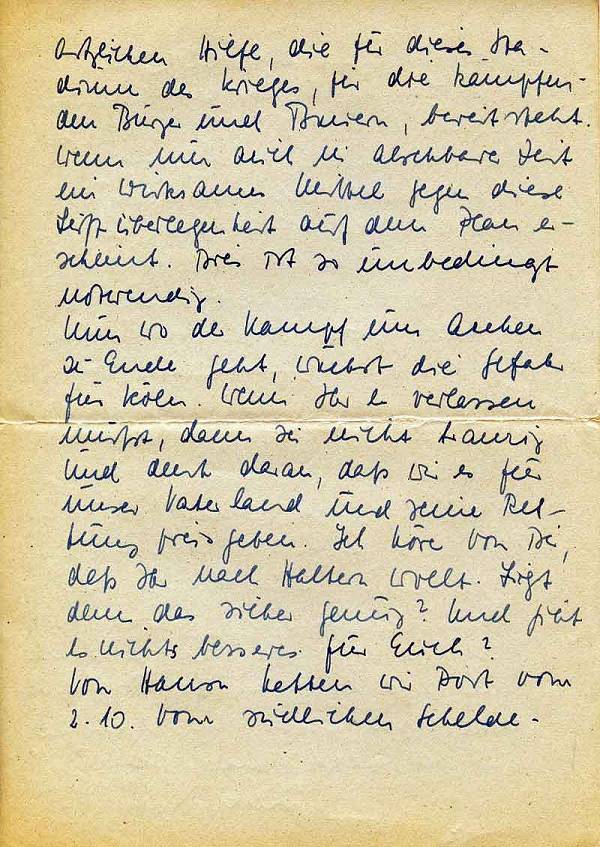 ärztlichen Hilfe, die für dieses Sta-
dium des Krieges, für die kämpfen-
den Bürger und Bauern, bereit steht.
Wenn nur auch in absehbarer Zeit
ein wirksames Mittel gegen diese
Luftüberlegenheit auf dem Plan er-
scheint. Dies ist so unbedingt
notwendig.
Nun wo der Kampf um Aachen
zu Ende geht, wächst die Gefahr
für Köln. Wenn Ihr es verlassen
müßt, dann sei nicht traurig
und denk daran, daß wir es für
unser Vaterland und seine Ret-
tung preisgeben. Ich höre von Dir,
daß Ihr nach Haltern wollt. Liegt
denn das sicher genug? Und gibt
es nichts besseres für Euch?
Von Hanson hatten wir Post vom
2.10. vom südlichen Schelde-